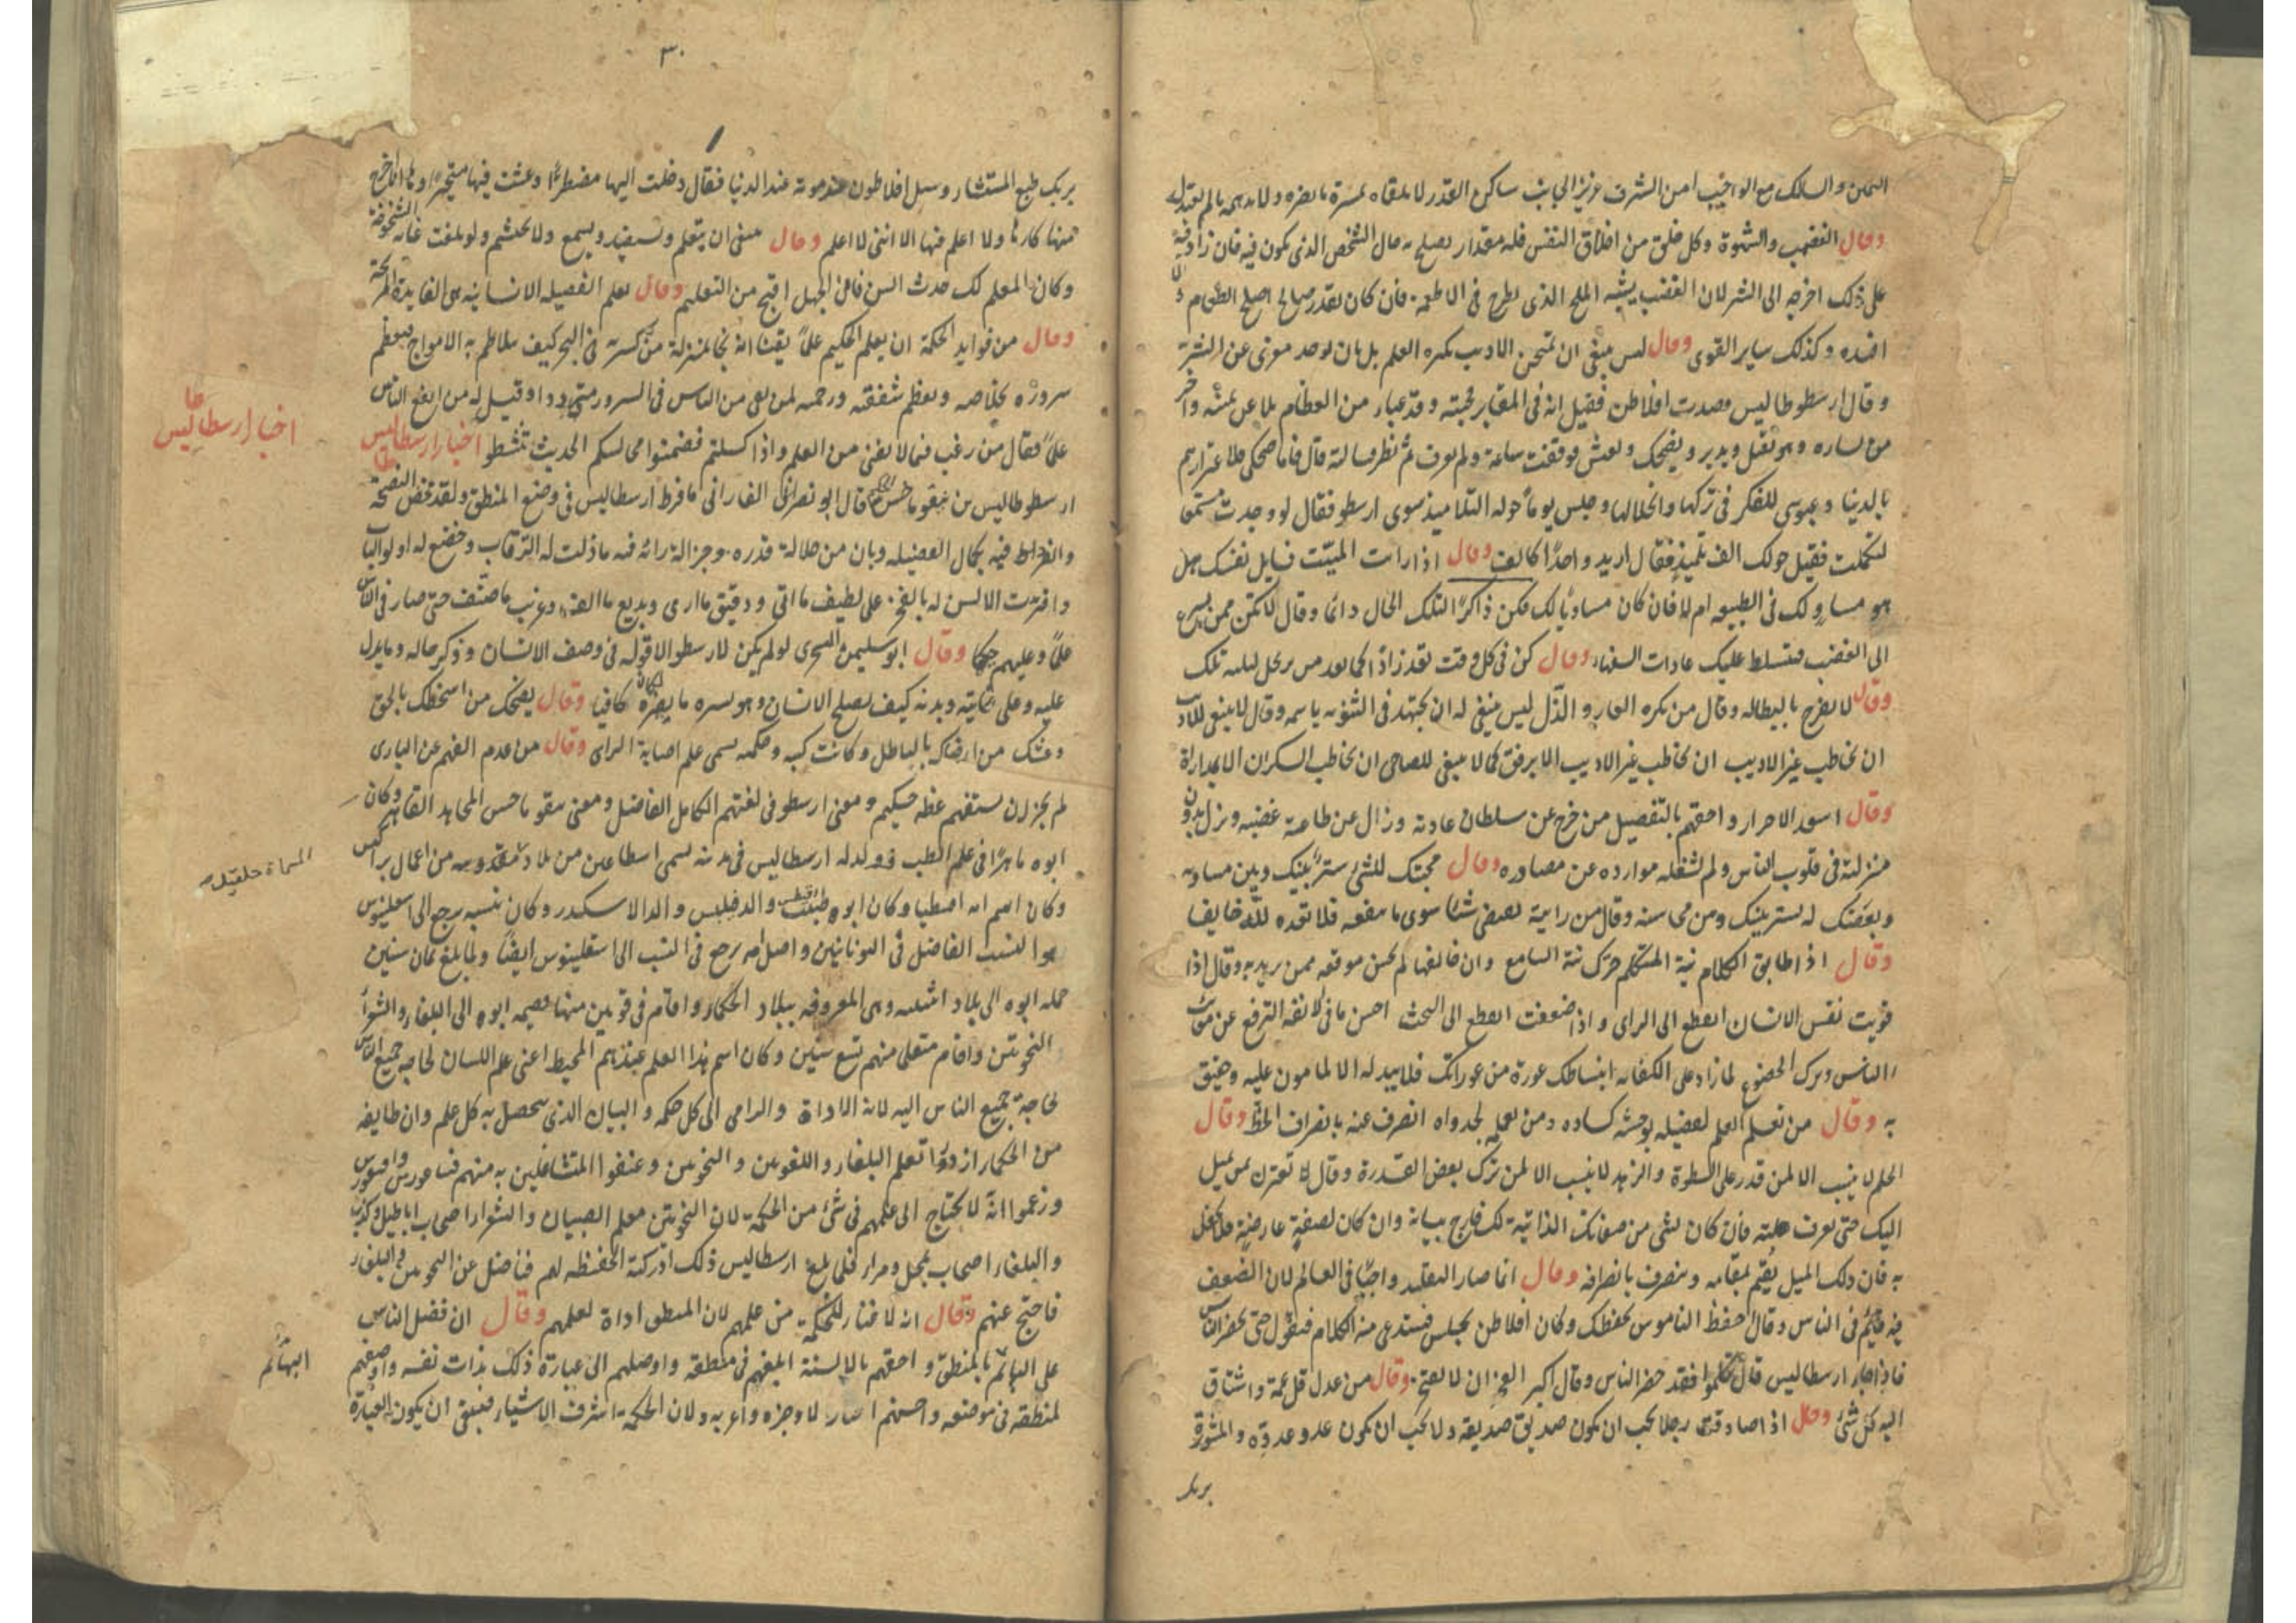 والسالك مع الواجب امن الشرف عزيز الجانب ساكن القدر لا يلقاه بمسرة ما يضره ولا يدهمه ما لم
وقال الغضب والشهوة وكل خلق من اخلاق النفس فله مقدار يصلح به حال الشخص الذى يكون فيه فان زاد فيه
على ذلك اخرجه الى الشر لان الغضب يشبه الملح الذى يطرح فى الاطعمة فان كان بقدر صالح اصلح الطعام والا
افسده وكذلك ساير القوى وقال ليس ينبغى ان تمتحن الاديب بكثرة العلم بل بان يوجد معرى عن الشر
وقال ارسطوطاليس قصدت افلاطن فقيل انه فى المقابر فجئته وقد عبار من العظام بلا عن يمينه واخر
من يساره وهو يقبل ويدبر ويضحك ويعبس فوقفت ساعة ولم يعرف ثم نظر فسالته قال فاما ضحكى فلاغترارهم
بالدنيا وعبوسى للفكر فى تركها وانحلالها وجلس يوما حوله التلاميذ سوى ارسطو فقال لو وجدت مستمعا
لتكلمت فقيل حولك الف تلميذ فقال اريد واحدًا كالف وقال اذا رايت الميت فسايل نفسك هل
هو مساو لك فى الطبيعه ام لا فان كان مساويًا لك فكن ذاكرًا لتلك الحال دائما وقال لا تكن ممن يسرع
الى الغضب فيتسلط عليك عادات السفهاء وقال كن فى كل وقت
وقال لا تفرح بالبطاله وقال من يكره العار والذل ليس ينبغى له ان يجتهد فى التنويه باسمه وقال لا ينبغى للاديب
ان يخاطب غير الاديب ان يخاطب غير الاديب الا برفق كما لا ينبغى للصاحى ان يخاطب السكران الا بمداراة
وقال اسعد الاحرار واحقهم بالتفضيل من خرج عن سلطان عادته وزال عن طاعة غضبه ونزل بدون
منزلته فى قلوب الناس ولم تشغله موارده عن مصادره وقال محبتك للشئ ستر بينك وبين مساويه
وبغضتك له ستر بينك ومن محاسنه وقال من رايته يبغض شيا سوى ما ينفعه فلا تعده لله خايفا
وقال اذا طابق الكلام نية المتكلم حرك نية السامع وان خالفها لم يحسن موقعه ممن يريد به وقال اذا
قويت نفس الانسان انقطع الى الراى واذا ضعفت انقطع الى البحث احسن ما فى الانفه الترفع عن معايب
الناس وترك الخضوع لما زاد على الكفايه انبساطك عورة من عوراتك فلا يبد له الا لمامون عليه وحقيق
به وقال من تعلم العلم لفضيله لم يوحشه كساده ومن تعلمه لجدواه انصرف عنه بانصراف الحظ وقال
الحلم لا ينسب الا لمن قدر على السطوة والزهد لا ينسب الا لمن ترك بعض القدرة وقال لا تغترن بمن يميل
اليك حتى تعرف علته فان كان لشئ من صفاتك الذاتية لك فارج ثباته وان كان لصفة عارضة فلا تحفل
به فان ذلك الميل يقيم بمقامه وينصرف بانصرافه وقال انما صار التقليد واجبا فى العالم لان الضعف
فيه قايم فى الناس وقال احفظ الناموس يحفظك وكان افلاطن يجلس فيستدعى منه الكلام فيقول حتى يحضر الناس
فاذا جاء ارسطاليس قال تكلموا فقد حضر الناس وقال اكبر الفخر ان لا تفتخر وقال من عدل قل غمه واشتاق
اليه كل شئ وقال اذا صادقت رجلا يجب ان يكون صديق صديقه ولا يجب ان يكون عدو عدوه والمشورة
يريك
٣٠
يريك طبع المستشار وسيل افلاطون عند موته عند الدنيا فقال دخلت اليها مضطرًا وعشت فيها متحيرا وها انا اخرج
منها كارها ولا اعلم فيها الا اننى لا اعلم وقال ينبغى ان يتعلم ويستفيد ويسمع ولا يحتشم ولو بلغت غاية الشيخوخة
وكان المعلم لك حدث السن فان الجهل اقبح من التعليم وقال تعلم الفضيله الانسانيه هى الفايدة
وقال من فوايد الحكمة ان يعلم الحكيم علمًا يقينا انه نجا بمنزلة من كسر به فى البحر كيف يتلاطم به الامواج فيعظم
سروره بخلاصه ويعظم شفقته ورحمته لمن بقى من الناس فى السرور مترددا وقيل له من انفع الناس
علمًا فقال من رغب فيما لا يغنى من العلم واذا كسلتم فضمنوا مجالسكم الحديث تنشطوا اخبار ارسطاطاليس
اخبار ارسطاطاليس
ارسطوطاليس بن نيقوماخس قال ابو نصر الفارابى ما فرط ارسطاليس فى وضع المنطق ولقد محض النصيحة
فيه بكمال الفضيله وبان من جلالة قدره وجزالة رائه فيه ما ذلت له الرقاب وخضع له اولو الباب
واقرت الالسن له بالفخر على لطيف ما اتى ودقيق ما ارى وبديع ما الف وغريب ما صنف حتى صار فى الناس
علمًا وعليهم حكما وقال ابو سليمن السجزى لو لم يكن لارسطو الا قوله فى وصف الانسان وذكر حاله وما يدل
عليه وعلى وبدنه كيف يصلح الانسان وهو يسره ما يضره لكان كافيا وقال يضحك من اسخطك بالحق
وغشك من ارضاك بالباطل وكانت كتبه وحكمه تسمى علم اصابة الراى وقال من عدم الفهم عن البارى
لم يجز ان يستفهم عظة حكيم ومعنى ارسطو فى لغتهم الكامل الفاضل ومعنى نيقوماخس المجاهد القاهر وكان
ابوه ماهرًا فى علم الطب وولد له ارسطاليس فى مدينه تسمى اسطاغين من بلاد مقدونيه من اعمال
المسماة خلقيديه
وكان اسم امه افسطيا وكان ابوه طبيب والد فيلبس والد الاسكندر وكان نسبه يرجع الى اسقلينوس
هو النسب الفاضل فى اليونانيين واصل امه يرجع فى النسب الى اسقلينوس ايضًا ولما بلغ ثمان سنين
حمله ابوه الى بلاد اثينيه وهى المعروفه ببلاد الحكماء واقام فى قوبين منها فضمه ابوه الى البلغاء والشعراء
النحويين واقام متعلما منهم تسع سنين وكان اسم هذا العلم عندهم المحيط اعنى علم اللسان لحاجه جميع الناس
لحاجة جميع الناس اليه لانه الاداة والداعى الى كل حكمه والبيان الذى يتحصل به كل علم وان طايفه
من الحكماء ازدروا تعلم البلغاء واللغويين والنحويين وعنفوا المتشاغلين به منهم فيثاغورس وافيقورس
وزعموا انه لا يحتاج الى علمهم فى شئ من الحكمة لان النحويين معلم الصبيان والشعراء اصحاب اباطيل وكذب
والبلغاء اصحاب تمحل ومراء فلما بلغ ارسطاليس ذلك ادركته الحفيظه لهم فناضل عن النحويين والبلغاء
فاحتج عنهم وقال انه لا غناء للحكمة من علمهم لان المنطق اداة لعلمهم وقال ان فضل الناس
على البهائم بالمنطق واحقهم بالانسنة ابلغهم فى منطقه واوصلهم الى عبارة ذلك بذات نفسه واوضعهم
البهائم
لمنطقه فى موضعه واحسنهم اختيار لاوجزه واعربه ولان الحكمة اشرف الاشياء فينبغى ان يكون العبارة